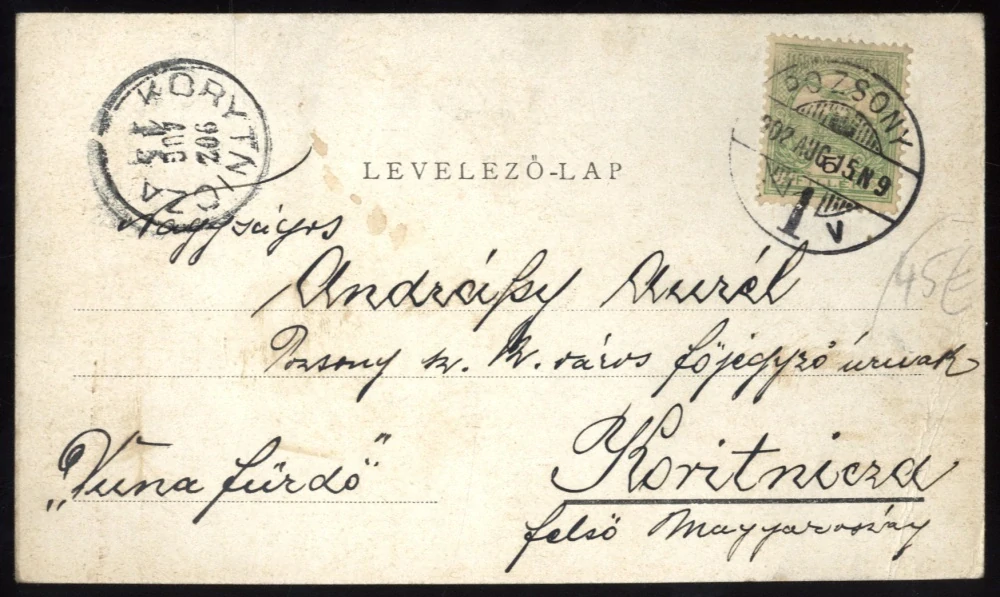 KORYTNICZA
902 AUG
POZSONY
902 AUG. 15. N 9
1
V
LEVELEZŐ-LAP
Nagyságos
Andráſsy Aurél
Pozsony sz. k. város főjegyző úrnak
Koritnicza
felső Magyarország
"fürdő"
45E